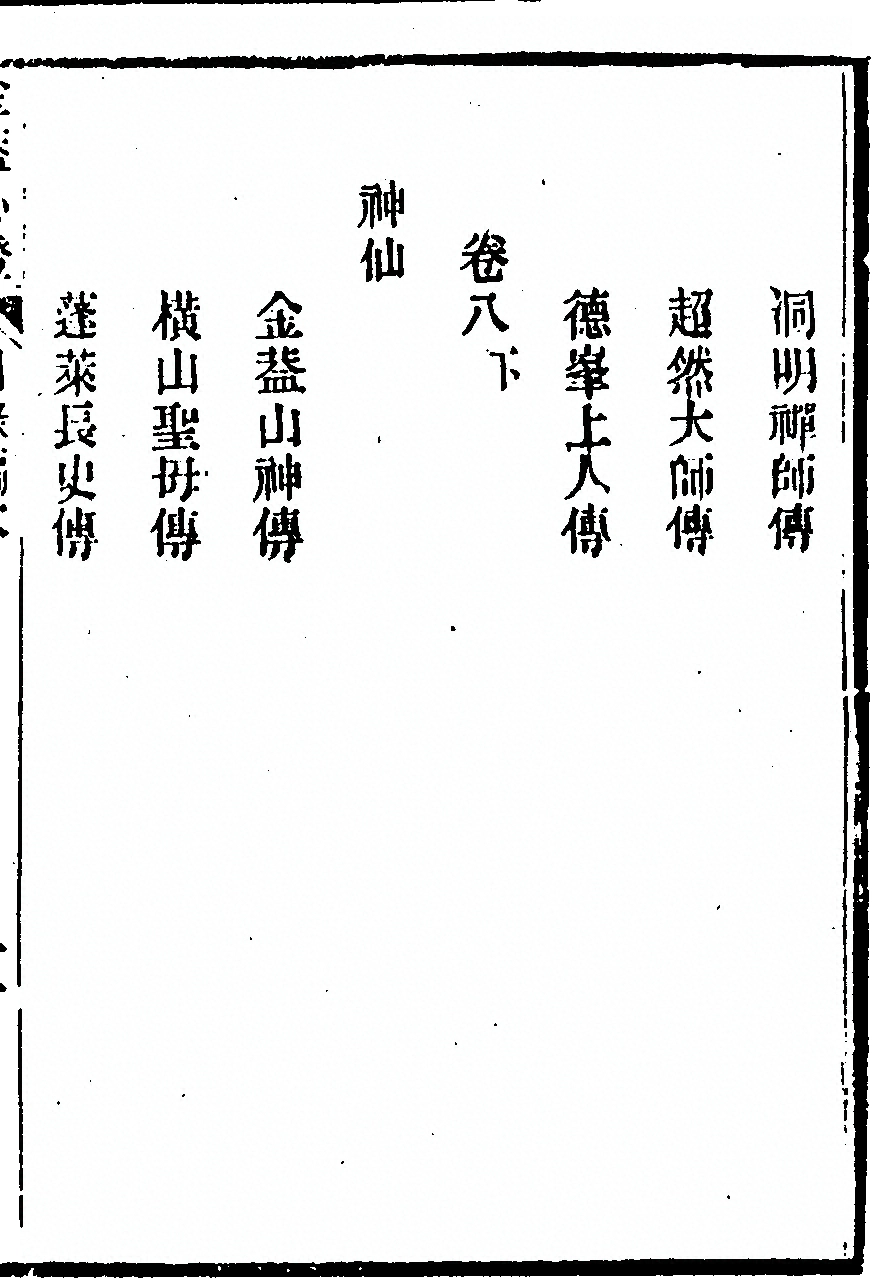 洞明禪師傳
超然大師傳
德峯上人傳
卷八下
神仙
金葢山神傳
橫山聖母傳
蓬萊長史傳